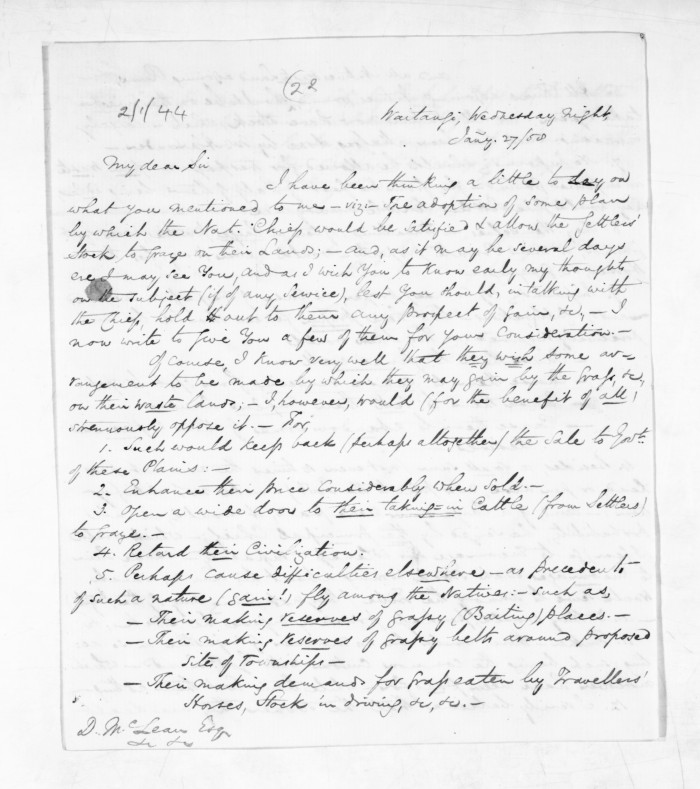 (22
2/1/44
Waitangi, Wednesday Night,
Jany. 27/50
My dear Sir
I have been thinking a little to day on
what You mentioned to me – viz – The adoption of some plan
by which the Nat: Chiefs would be satisfied & allow the Settlers'
Stock to graze on their Lands; – and, as it may be several days
ere I may see You, and as I wish You to know early my thoughts
on the subject (if of any Service), lest You should, in talking with
the Chiefs, hold out to them any prospect of gain, &c, – I
now write to give You a few of them for Your Consideration. –
Of course, I know very well that they wish some ar-
rangement to be made by which they may gain by the Grass, &c,
on their waste lands; – I, however, would (for the benefit of all)
strenuously oppose it. – For,
1. Such would keep back (perhaps altogether) the Sale to Govt.
of these Plains: –
2. Enhance their price considerably when sold: –
3. Open a wide door to their taking-in Cattle (from Settlers)
to graze. –
4. Retard their Civilization.
5. Perhaps cause difficulties elsewhere – as precedents
of such a nature (gain!) fly among the Natives: – such as,
– Their making reserves of grassy (Baiting) places. –
– Their making reserves of grassy belts around proposed
Site of Townships –
– Their making demands for Grass eaten by Travellers'
Horses, Stock in driving, &c, &c. –
D. McLean Esq
&c &c